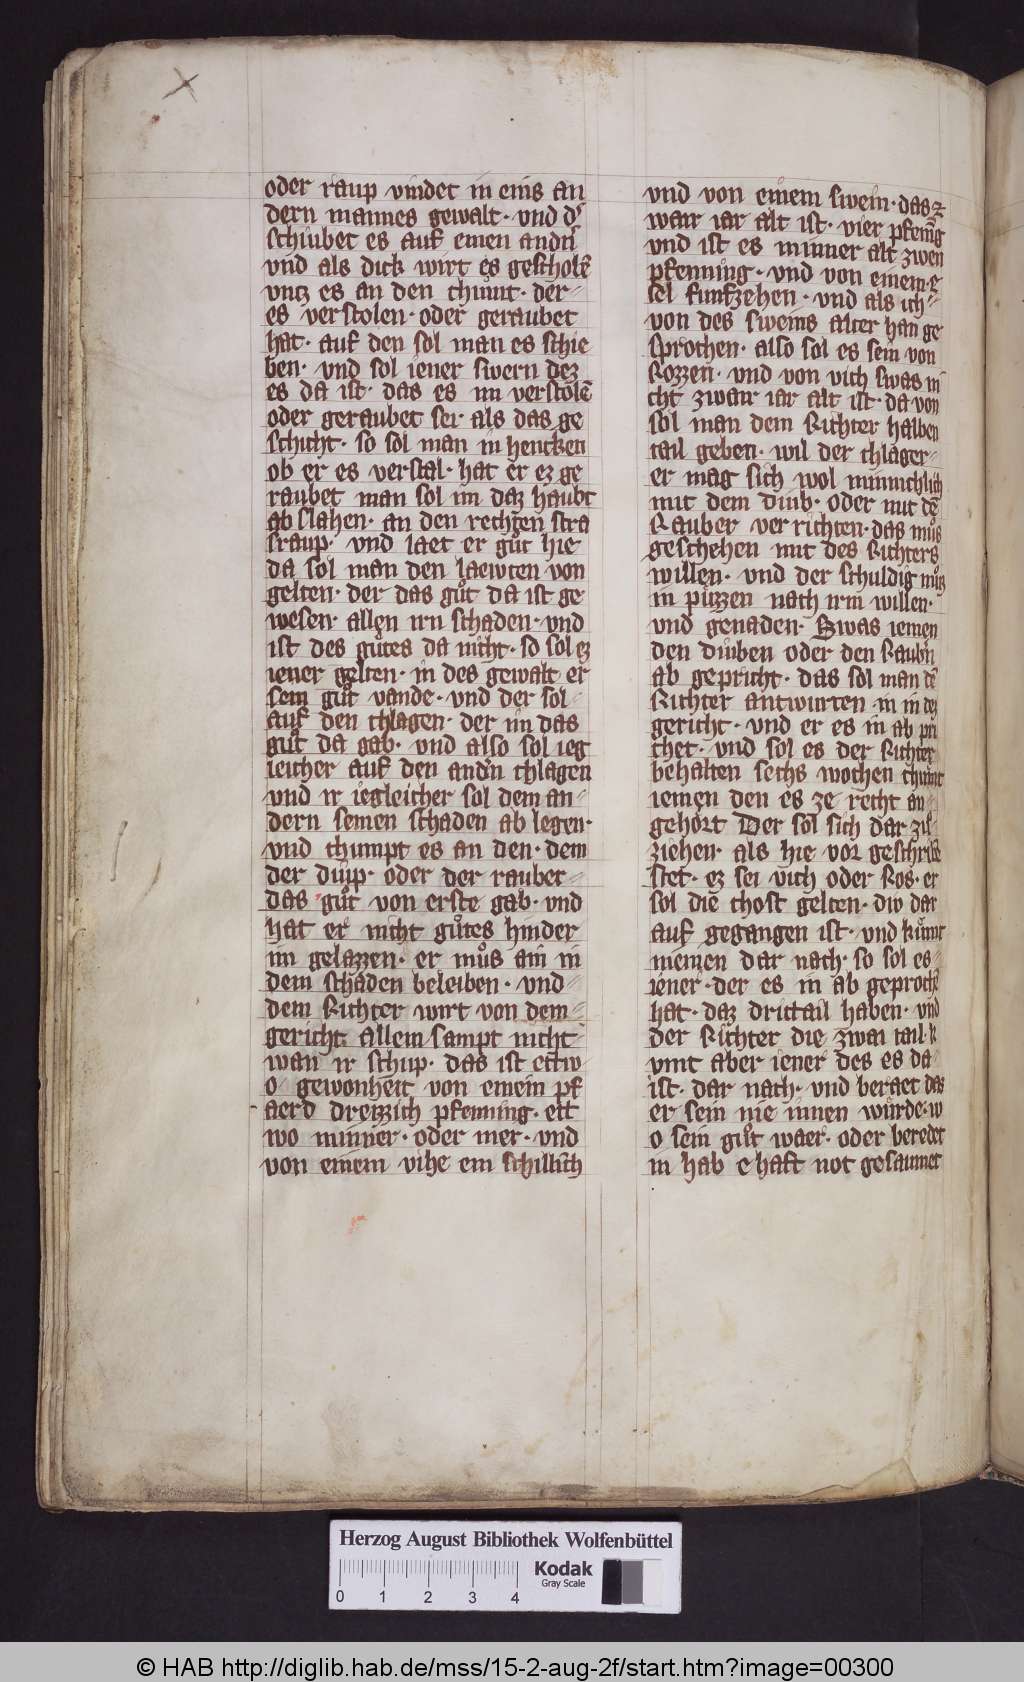 oder raup vindet in eins an
dern mannes gewalt · vnd dˢ
schiubet es auf einen andn̄
vnd als dick wirt es gescholē
vntz es an den chuͦmt · der⸗
es verstolen · oder geraubet
hat · auf den sol man es schie
ben · vnd sol iener swern dez
es da ist · das es im verstolē
oder geraubet sei · als das ge
schicht · so sol man in hencken
ob er es verstal · hat er ez ge
raubet man sol im daz haubt
ab slahen · an den rechten stra
sraup · vnd laet er guͦt hie
da sol man den laewten von
gelten · der das guͦt da ist ge
wesen · allen irn schaden · vnd
ist des guͦtes da nicht · so sol ez
iener gelten · in des gewalt er
sein guͦt vande · vnd der sol⸗
auf den chlagen · der im das
guͦt da gab · vnd also sol ieg
leicher auf den andn̄ chlagen
vnd ir iegleicher sol dem an⸗
dern seinen schaden ab legen ·
vnd chumpt es an den · dem
der duip · oder der rauber⸗
das guͦt von erste gab · vnd
hat er nicht guͦtes hinder
im gelazzen · er muͦs ain in
dem schaden beleiben · vnd⸗
dem Richter wirt von dem⸗
gericht allein sampt nicht⸗
wan ir schup · das ist ettw⸗
o gewonheit von einem pf
aerd dreizzich pfenning · ett
wo minner · oder mer · vnd
von einem vihe ein schillīch
vnd von einem swein · das z
wair iar alt ist · vier pfenīg
vnd ist es minner alt zwen
pfenning · vnd von einem · E
sel funfzehen · vnd als ich⸗
von des sweins alter han ge
sprochen · also sol es sein von
Rozzen · vnd von vich swas ni
cht zwair iar alt ist · da von
sol man dem Richter halben
tail geben · wil der chlager⸗
er mag sich wol minnichlich
mit dem diub · oder mit dē
Rauber verrichten · das muͦs
geschehen mit des Richters
willen · vnd der schuldig muͦz
in puͤzzen nach irm willen ·
vnd genaden · Swas iemen
den diuben oder den Raubn̄
ab gepricht · das sol man dē
Richter antwurten · in in dez
gericht · vnd er es in ab pri
chet · vnd sol es der Richter
behalten sechs wochen chuͦmt
iemen den es ze recht an⸗
gehoͤrt Der sol sich dar zu⸗
ziehen · als hie vor geschribē
stet · ez sei vich oder Ros · er
sol die chost gelten · diw dar
auf gegangen ist · vnd kuͦmt
niemen dar nach · so sol es⸗
iener · der es in ab geprochē
hat · daz drittail haben · vnd
der Richter die zwai tail · k
vmt aber iener des es da⸗
ist · dar nach · vnd beraet das
er sein nie innen wuͤrde · w
o sein guͦt waer · oder beredet
in hab ehaft not gesaumet
Herzog August Bibliothek Wolfenbüttel
Kodak
Gray Scale
0 1 2 3 4
© HAB http://diglib.hab.de/mss/15-2-aug-2f/start.htm?image=00300